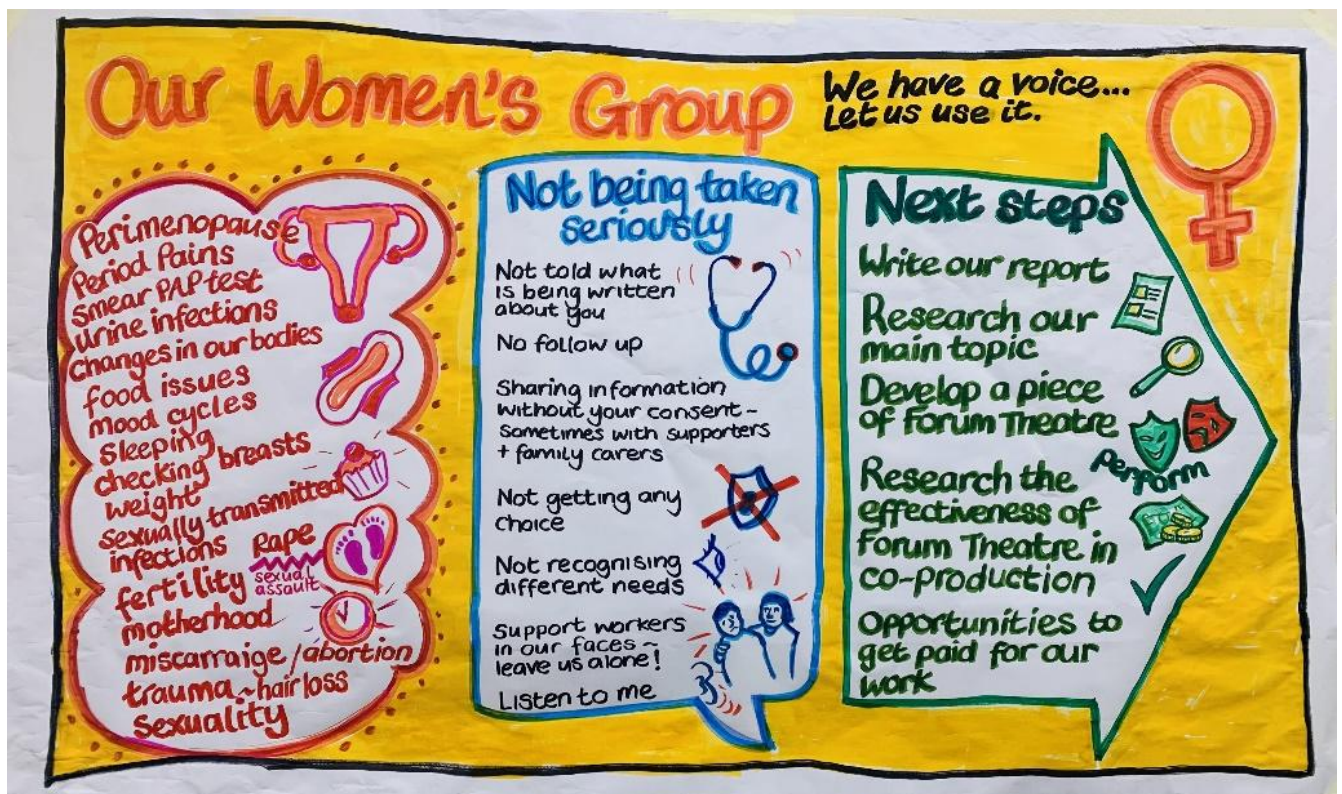 Our Women's Group
We have a voice...
Let us use it.
Perimenopause
Period Pains
Smear PAP test
Urine infections
Changes in our bodies
food issues
mood cycles
Sleeping
checking breasts
weight
sexually transmitted
infections
Rape
sexual
assault
fertility
motherhood
miscarraige/abortion
trauma ~ hair loss
Sexuality
Not being taken
seriously
Not told what
is being written
about you
No follow up
Sharing information
without your consent ~
Sometimes with supporters
+ family carers
Not getting any
choice
Not recognising
different needs
Support workers
in our faces ~
leave us alone!
Listen to me
Next steps
Write our report
Research our
main topic
Develop a piece
of Forum Theatre
perform
Research the
effectiveness of
Forum Theatre in
co-production
Opportunities to
get paid for our
work